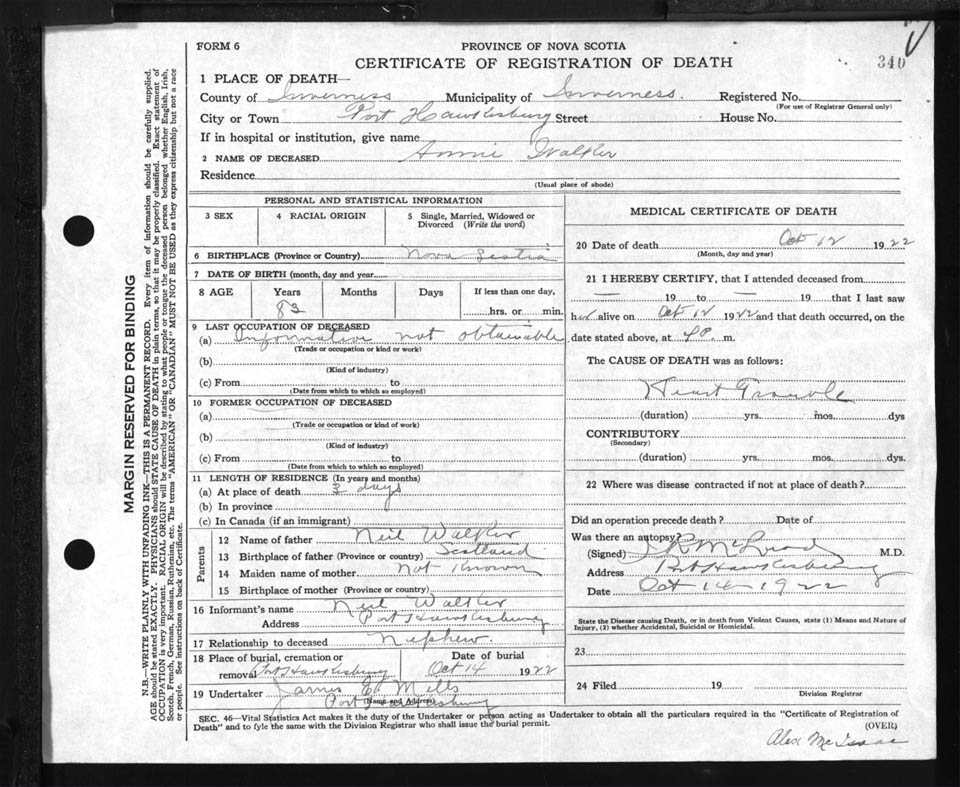 FORM 6
PROVINCE OF NOVA SCOTIA
CERTIFICATE OF REGISTRATION OF DEATH
340
1 PLACE OF DEATH—
County of Inverness Municipality of Inverness. Registered No.
(For use of Registrar General only)
City or Town Port Hawkesbury Street House No.
If in hospital or institution, give name
2 NAME OF DECEASED Annie Walker
Residence
(Usual place of abode)
PERSONAL AND STATISTICAL INFORMATION
3 SEX
4 RACIAL ORIGIN
5 Single, Married, Widowed or Divorced (Write the word)
6 BIRTHPLACE (Province or Country) Nova Scotia
7 DATE OF BIRTH (month, day and year)
8 AGE Years Months Days If less than one day,
83 hrs. or min.
9 LAST OCCUPATION OF DECEASED
(a) Information not obtainable
(Trade or occupation or kind or work)
(b)
(Kind of industry)
(c) From to
(Date from which to which so employed)
10 FORMER OCCUPATION OF DECEASED
(a)
(Trade or occupation or kind of work)
(b)
(Kind of industry)
(c) From to
(Date from which to which so employed)
11 LENGTH OF RESIDENCE (In years and months)
(a) At place of death 3 days
(b) In province
(c) In Canada (if an immigrant)
Parents
12 Name of father Neil Walker
13 Birthplace of father (Province or country) Scotland
14 Maiden name of mother Not Known
15 Birthplace of mother (Province or country)
16 Informant's name Neil Walker
Address Port Hawkesbury
17 Relationship to deceased Nephew.
18 Place of burial, cremation or Date of burial
removal Port Hawkesbury Oct 14 1922
19 Undertaker James Ed Mills
Port Hawkesbury
(Name and Address)
MEDICAL CERTIFICATE OF DEATH
20 Date of death Oct 12 1922
(Month, day and year)
21 I HEREBY CERTIFY, that I attended deceased from
— 19 to — 19 that I last saw
h alive on Oct 12 1922 and that death occurred, on the
date stated above, at 4 P. m.
The CAUSE OF DEATH was as follows:
Heart Trouble
(duration) yrs. mos. dys
CONTRIBUTORY
(Secondary)
(duration) yrs. mos. dys.
22 Where was disease contracted if not at place of death?
Did an operation precede death? Date of
Was there an autopsy?
(Signed) M.D.
Address Port Hawkesbury
Date Oct 14 1922
State the Disease causing Death, or in death from Violent Causes, state (1) Means and Nature of
Injury, (2) whether Accidental, Suicidal or Homicidal.
23
24 Filed 19
Division Registrar
SEC. 46—Vital Statistics Act makes it the duty of the Undertaker or person acting as Undertaker to obtain all the particulars required in the "Certificate of Registration of
Death" and to fyle the same with the Division Registrar who shall issue the burial permit.
(OVER)
Alex McIsaac
MARGIN RESERVED FOR BINDING
N.B.—WRITE PLAINLY WITH UNFADING INK—THIS IS A PERMANENT RECORD. Every item of information should be carefully supplied.
AGE should be stated EXACTLY. PHYSICIANS should STATE CAUSE OF DEATH in plain terms, so that it may be properly classified. Exact statement of
OCCUPATION is very important. RACIAL ORIGIN will be described by stating to what people or tongue the deceased person belonged whether English, Irish,
Scotch, French, German, Russian, Ruthenian, etc. The terms "AMERICAN" OR "CANADIAN" MUST NOT BE USED as they express citizenship but not a race
or people. See instructions on back of Certificate.